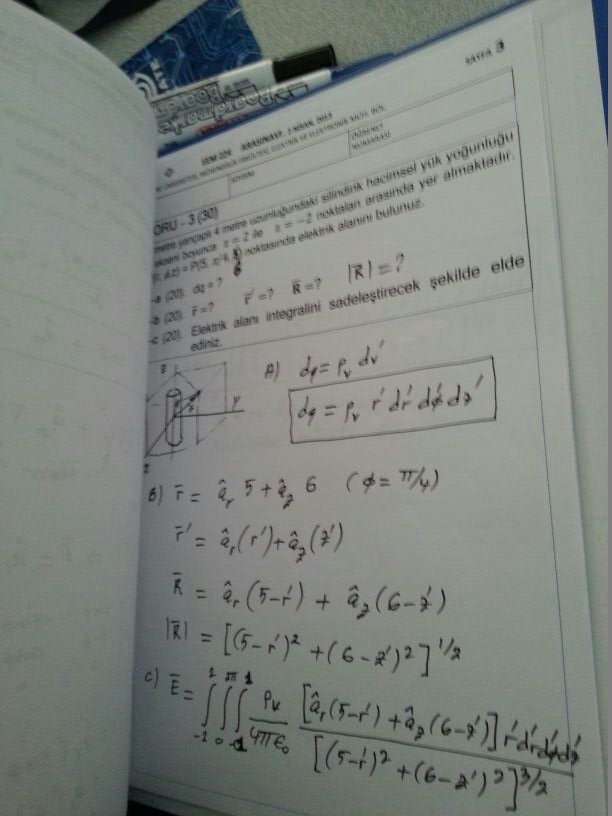 SAYFA 3
EEM 224 ARASINAV 2 NİSAN 2013
ÜNİVERSİTESİ, MÜHENDİSLİK FAKÜLTESİ, ELEKTRİK VE ELEKTRONİK MÜH. BÖL.
ÖĞRENCİ
NUMARASI
ORU – 3 (30)
metre yarıçaplı 4 metre uzunluğundaki silindirik hacimsel yük yoğunluğu
ekseni boyunca z = 2 ile z = −2 noktaları arasında yer almaktadır.
= P(5, π/4, 6) noktasında elektrik alanını bulunuz.
-a (20). dq = ?
-b (20). r̅ = ? r̅' = ? R̅ = ? |R̅| = ?
-c (20). Elektrik alanı integralini sadeleştirecek şekilde elde
ediniz.
z
y
x
A) dq = ρv dv'
dq = ρv r' dr' dϕ' dz'
B) r̅ = âr 5 + âz 6 (ϕ = π/4)
r̅' = âr(r') + âz(z')
R̅ = âr(5-r') + âz(6-z')
|R̅| = [(5-r')² + (6-z')²]^1/2
C) E̅ = ∫∫∫ ρv/4πϵ0 [âr(5-r') + âz(6-z')] r'dr'dϕ'dz' / [(5-r')² + (6-z')²]^3/2